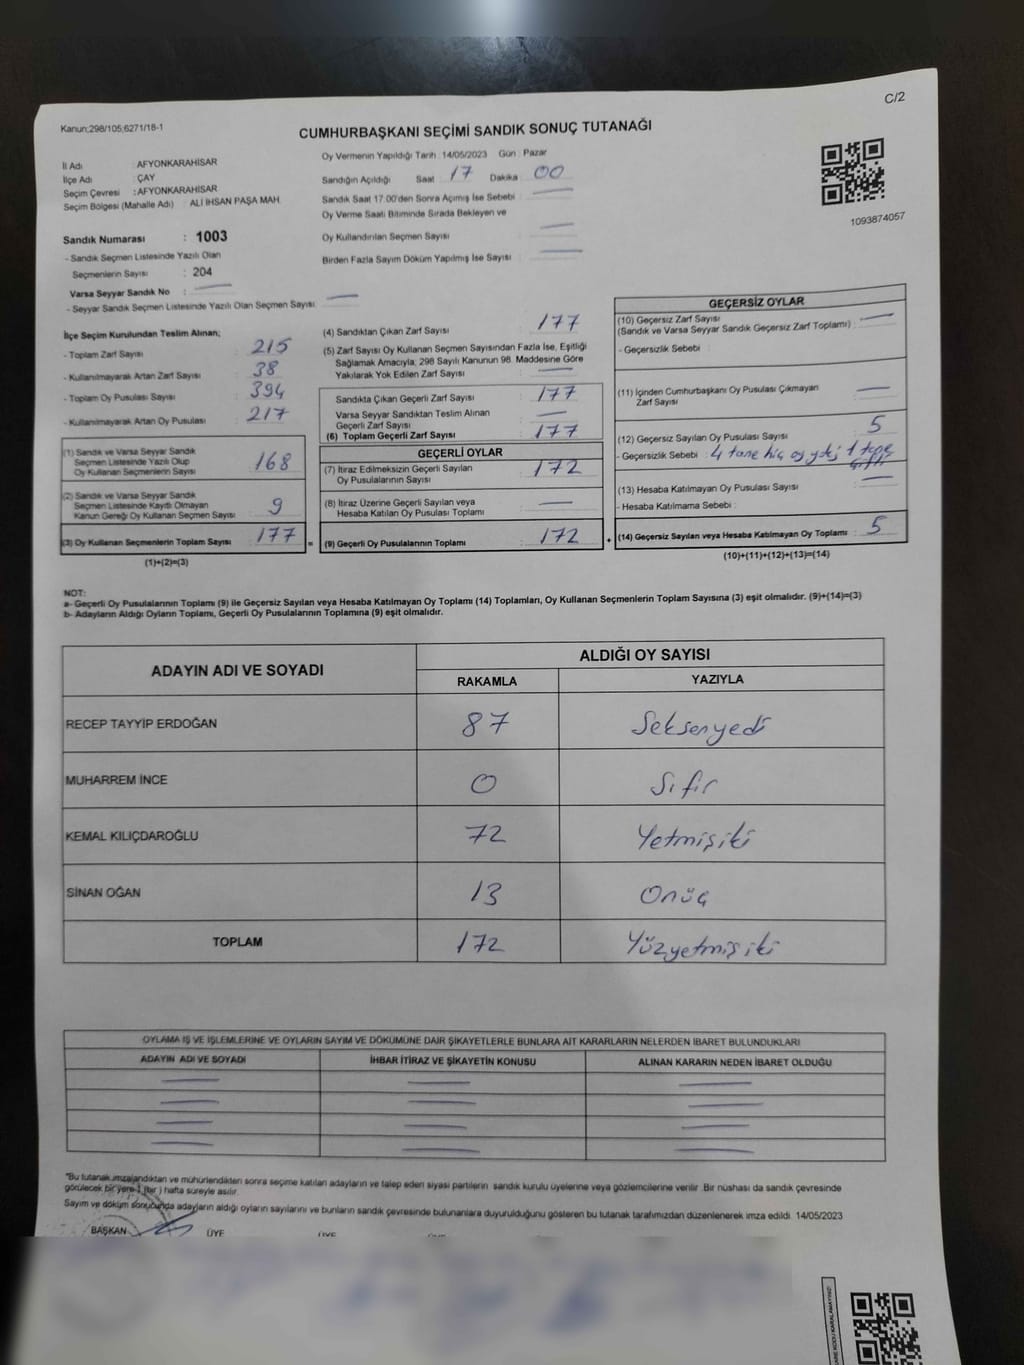 C/2
Kanun;298/105;6271/18-1
CUMHURBAŞKANI SEÇİMİ SANDIK SONUÇ TUTANAĞI
İl Adı : AFYONKARAHİSAR
İlçe Adı : ÇAY
Seçim Çevresi : AFYONKARAHİSAR
Seçim Bölgesi (Mahalle Adı) : ALİ İHSAN PAŞA MAH.
Oy Vermenin Yapıldığı Tarih : 14/05/2023 Gün : Pazar
Sandığın Açıldığı Saat : 17 Dakika : 00
Sandık Saat 17.00'den Sonra Açımış İse Sebebi :
Oy Verme Saati Bitiminde Sırada Bekleyen ve
Oy Kullandırılan Seçmen Sayısı :
Birden Fazla Sayım Döküm Yapılmış İse Sayısı :
1093874057
Sandık Numarası : 1003
- Sandık Seçmen Listesinde Yazılı Olan
Seçmenlerin Sayısı : 204
Varsa Seyyar Sandık No :
- Seyyar Sandık Seçmen Listesinde Yazılı Olan Seçmen Sayısı:
İlçe Seçim Kurulundan Teslim Alınan;
- Toplam Zarf Sayısı : 215
- Kullanılmayarak Artan Zarf Sayısı : 38
- Toplam Oy Pusulası Sayısı : 394
- Kullanılmayarak Artan Oy Pusulası : 217
(1) Sandık ve Varsa Seyyar Sandık
Seçmen Listesinde Yazılı Olup
Oy Kullanan Seçmenlerin Sayısı : 168
(2) Sandık ve Varsa Seyyar Sandık
Seçmen Listesinde Kayıtlı Olmayan
Kanun Gereği Oy Kullanan Seçmen Sayısı : 9
(3) Oy Kullanan Seçmenlerin Toplam Sayısı : 177
(1)+(2)=(3)
(4) Sandıktan Çıkan Zarf Sayısı : 177
(5) Zarf Sayısı Oy Kullanan Seçmen Sayısından Fazla İse, Eşitliği
Sağlamak Amacıyla; 298 Sayılı Kanunun 98. Maddesine Göre
Yakılarak Yok Edilen Zarf Sayısı :
Sandıkta Çıkan Geçerli Zarf Sayısı : 177
Varsa Seyyar Sandıktan Teslim Alınan
Geçerli Zarf Sayısı :
(6) Toplam Geçerli Zarf Sayısı : 177
GEÇERLİ OYLAR
(7) İtiraz Edilmeksizin Geçerli Sayılan
Oy Pusulalarının Sayısı : 172
(8) İtiraz Üzerine Geçerli Sayılan veya
Hesaba Katılan Oy Pusulası Toplamı :
= (9) Geçerli Oy Pusulalarının Toplamı : 172 +
GEÇERSİZ OYLAR
(10) Geçersiz Zarf Sayısı
(Sandık ve Varsa Seyyar Sandık Geçersiz Zarf Toplamı) :
- Geçersizlik Sebebi :
(11) İçinden Cumhurbaşkanı Oy Pusulası Çıkmayan
Zarf Sayısı :
(12) Geçersiz Sayılan Oy Pusulası Sayısı : 5
- Geçersizlik Sebebi : 4 tane hiç oy 1 tane
(13) Hesaba Katılmayan Oy Pusulası Sayısı :
- Hesaba Katılmama Sebebi :
(14) Geçersiz Sayılan veya Hesaba Katılmayan Oy Toplamı : 5
(10)+(11)+(12)+(13)=(14)
NOT:
a- Geçerli Oy Pusulalarının Toplamı (9) ile Geçersiz Sayılan veya Hesaba Katılmayan Oy Toplamı (14) Toplamları, Oy Kullanan Seçmenlerin Toplam Sayısına (3) eşit olmalıdır. (9)+(14)=(3)
b- Adayların Aldığı Oyların Toplamı, Geçerli Oy Pusulalarının Toplamına (9) eşit olmalıdır.
ADAYIN ADI VE SOYADI
ALDIĞI OY SAYISI
RAKAMLA YAZIYLA
RECEP TAYYİP ERDOĞAN 87 Seksenyedi
MUHARREM İNCE 0 Sıfır
KEMAL KILIÇDAROĞLU 72 Yetmişiki
SİNAN OĞAN 13 Onüç
TOPLAM 172 Yüzyetmişiki
OYLAMA İŞ VE İŞLEMLERİNE VE OYLARIN SAYIM VE DÖKÜMÜNE DAİR ŞİKAYETLERLE BUNLARA AİT KARARLARIN NELERDEN İBARET BULUNDUKLARI
ADAYIN ADI VE SOYADI İHBAR İTİRAZ VE ŞİKAYETİN KONUSU ALINAN KARARIN NEDEN İBARET OLDUĞU
"Bu tutanak imzalandıktan ve mühürlendikten sonra seçime katılan adayların ve talep eden siyasi partilerin sandık kurulu üyelerine veya gözlemcilerine verilir. Bir nüshası da sandık çevresinde
görülecek bir yere 1 (bir) hafta süreyle asılır.
Sayım ve döküm sonucunda adayların aldığı oyların sayılarını ve bunların sandık çevresinde bulunanlara duyurulduğunu gösteren bu tutanak tarafımızdan düzenlenerek imza edildi. 14/05/2023
BAŞKAN ÜYE ÜYE